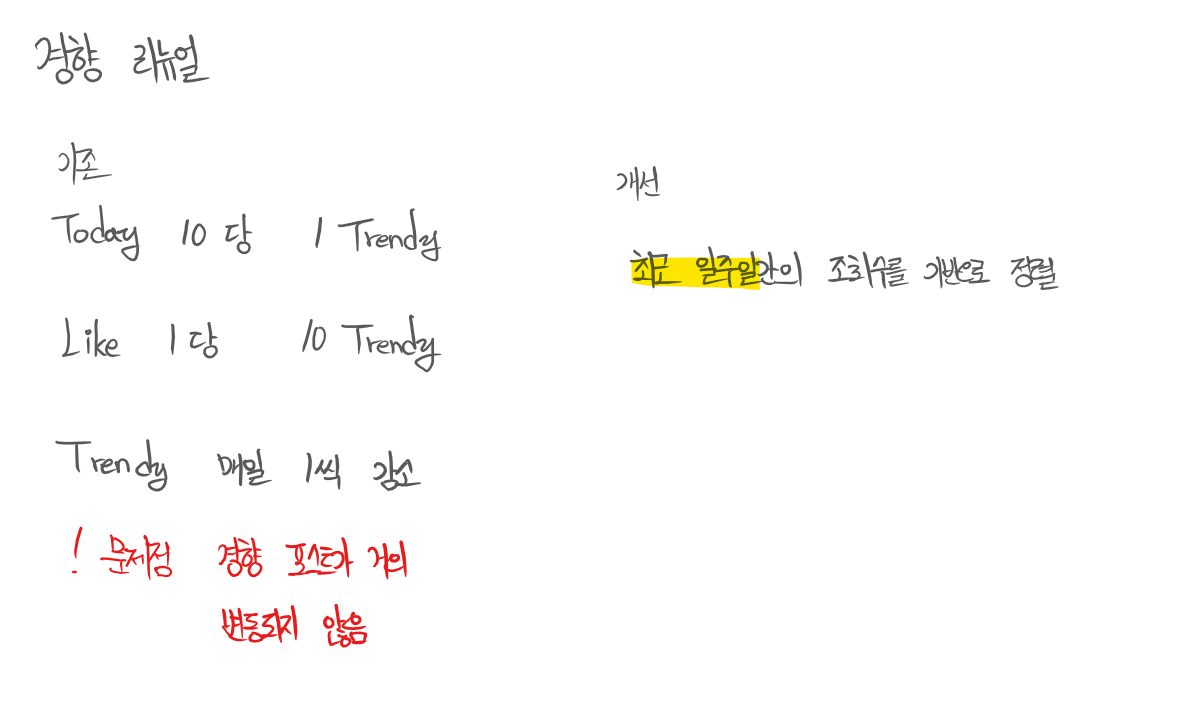 경향 리뉴얼
기존
Today 10 당 1 Trendy
Like 1 당 10 Trendy
Trendy 매일 1씩 감소
! 문제점 경향 포스트가 거의
변동되지 않음
개선
최근 일주일간의 조회수를 기반으로 정렬